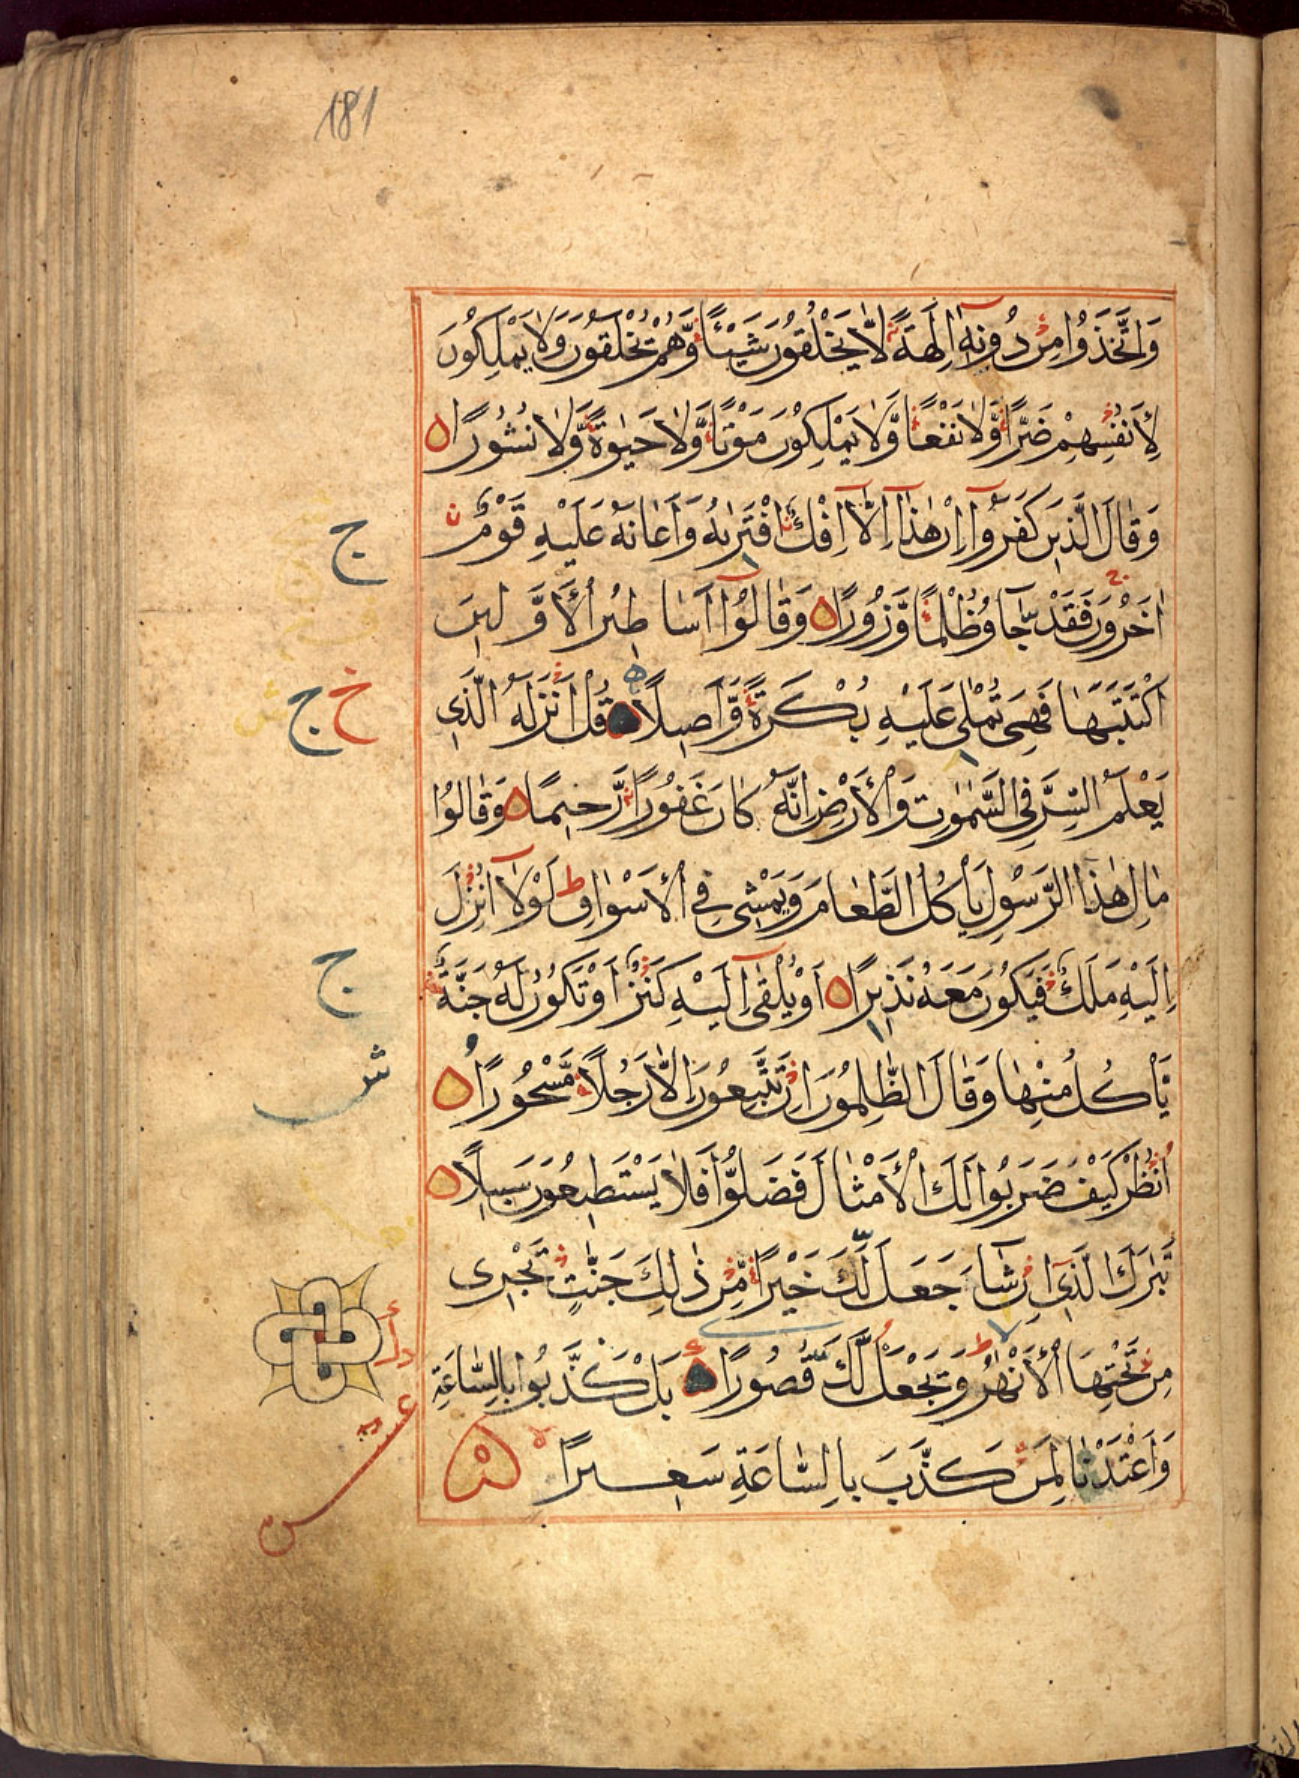 181
وَاتَّخَذُوا مِنْ دُونِهٖٓ اٰلِهَةً لَّا يَخْلُقُونَ شَيْـًٔا وَّهُمْ يُخْلَقُونَ وَلَا يَمْلِكُونَ
لِاَنْفُسِهِمْ ضَرًّا وَّلَا نَفْعًا وَّلَا يَمْلِكُونَ مَوْتًا وَّلَا حَيٰوةً وَّلَا نُشُورًا
وَقَالَ الَّذِينَ كَفَرُوٓا اِنْ هٰذَٓا اِلَّٓا اِفْكٌ افْتَرٰىهُ وَاَعَانَهُ عَلَيْهِ قَوْمٌ
ج
اٰخَرُونَ فَقَدْ جَآءُو ظُلْمًا وَّزُورًا وَقَالُوٓا اَسَاطِيرُ الْاَوَّلِينَ
اكْتَتَبَهَا فَهِيَ تُمْلٰى عَلَيْهِ بُكْرَةً وَّاَصِيلًا قُلْ اَنْزَلَهُ الَّذِي
خ ج
يَعْلَمُ السِّرَّ فِي السَّمٰوٰتِ وَالْاَرْضِ اِنَّهُ كَانَ غَفُورًا رَّحِيمًا وَقَالُوا
مَالِ هٰذَا الرَّسُولِ يَاْكُلُ الطَّعَامَ وَيَمْشِي فِي الْاَسْوَاقِ ط لَوْلَٓا اُنْزِلَ
اِلَيْهِ مَلَكٌ فَيَكُونَ مَعَهُ نَذِيرًا اَوْ يُلْقٰٓى اِلَيْهِ كَنْزٌ اَوْ تَكُونُ لَهُ جَنَّةٌ
ج
يَّاْكُلُ مِنْهَا وَقَالَ الظّٰلِمُونَ اِنْ تَتَّبِعُونَ اِلَّا رَجُلًا مَّسْحُورًا
انْظُرْ كَيْفَ ضَرَبُوا لَكَ الْاَمْثَالَ فَضَلُّوا فَلَا يَسْتَطِيعُونَ سَبِيلًا
تَبٰرَكَ الَّذِٓي اِنْ شَآءَ جَعَلَ لَكَ خَيْرًا مِّنْ ذٰلِكَ جَنّٰتٍ تَجْرِي
مِنْ تَحْتِهَا الْاَنْهٰرُ وَيَجْعَلْ لَّكَ قُصُورًا بَلْ كَذَّبُوا بِالسَّاعَةِ
وَاَعْتَدْنَا لِمَنْ كَذَّبَ بِالسَّاعَةِ سَعِيرًا